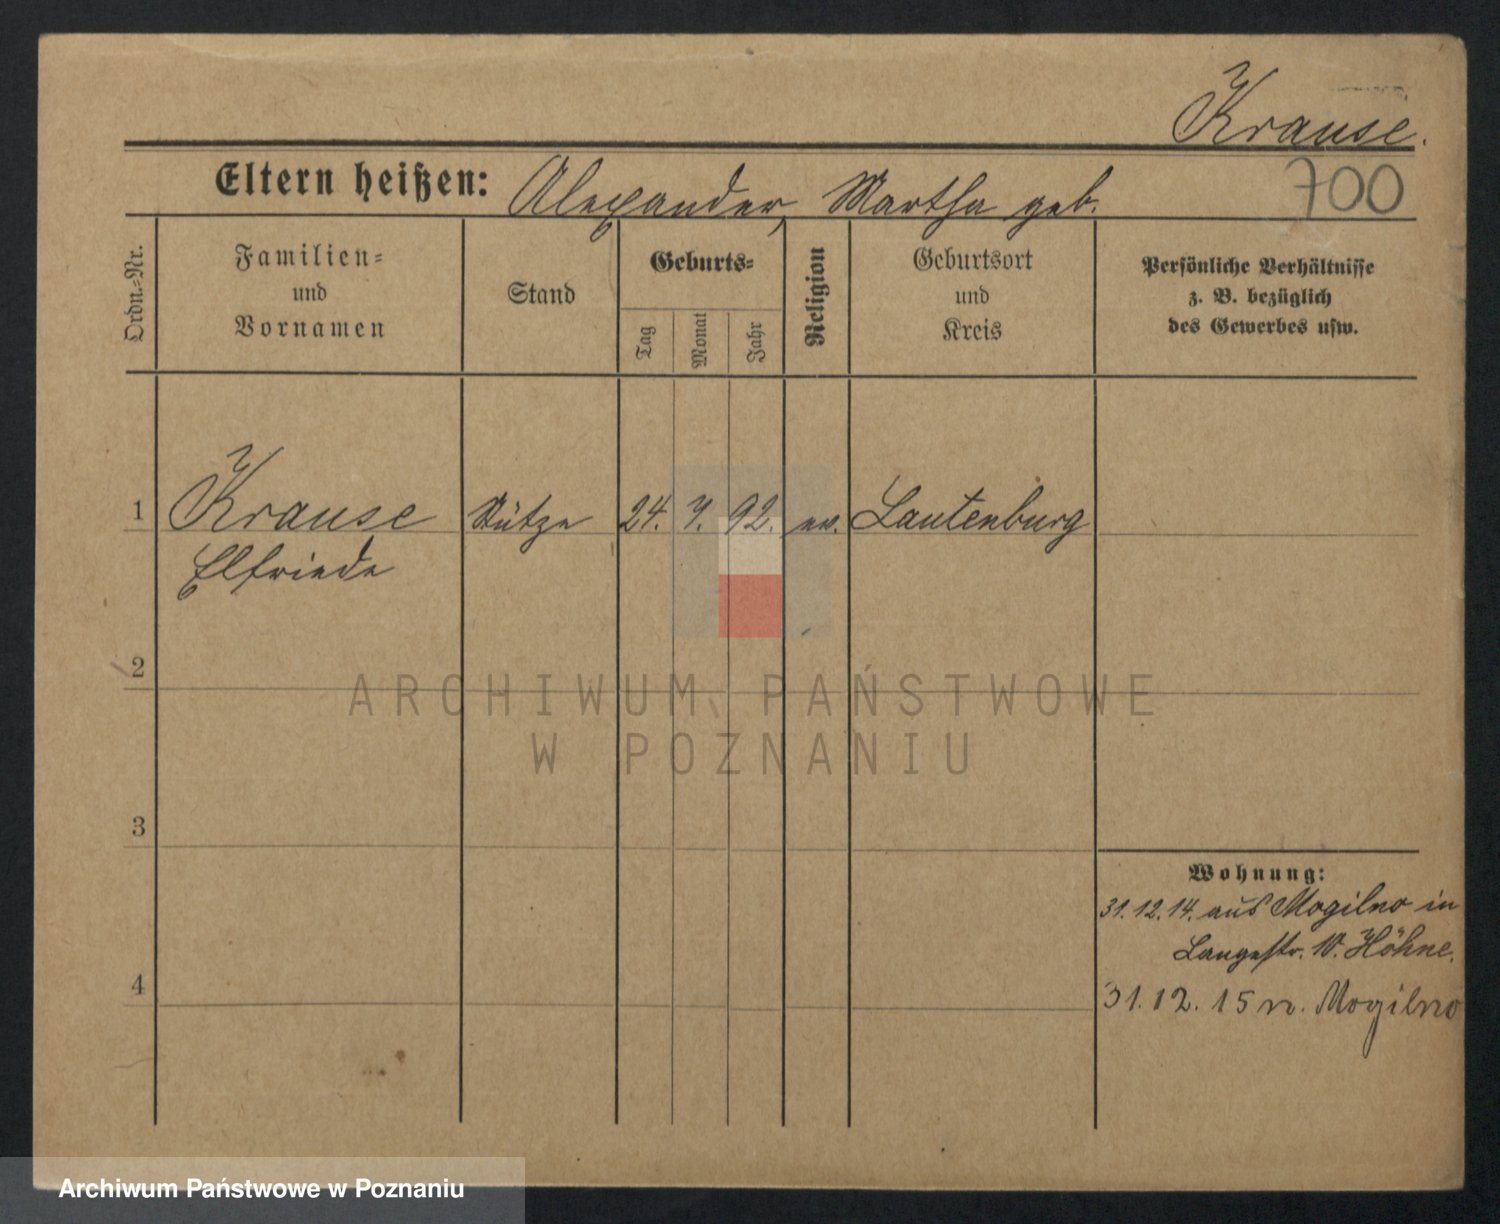 Krause.
700
Eltern heißen: Alexander, Martha geb.
Ordn.-Nr.
Familien-
und
Vornamen
Stand
Geburts-
Tag
Monat
Jahr
Religion
Geburtsort
und
Kreis
Persönliche Verhältnisse
z. B. bezüglich
des Gewerbes usw.
1 Krause Stütze 24. 7. 92. ev. Lautenburg
Elfriede
2
ARCHIWUM PAŃSTWOWE
W POZNANIU
3
Wohnung:
31.12.14. aus Mogilno in
Langestr. 10. Höhne.
4
31.12.15 n. Mogilno
Archiwum Państwowe w Poznaniu